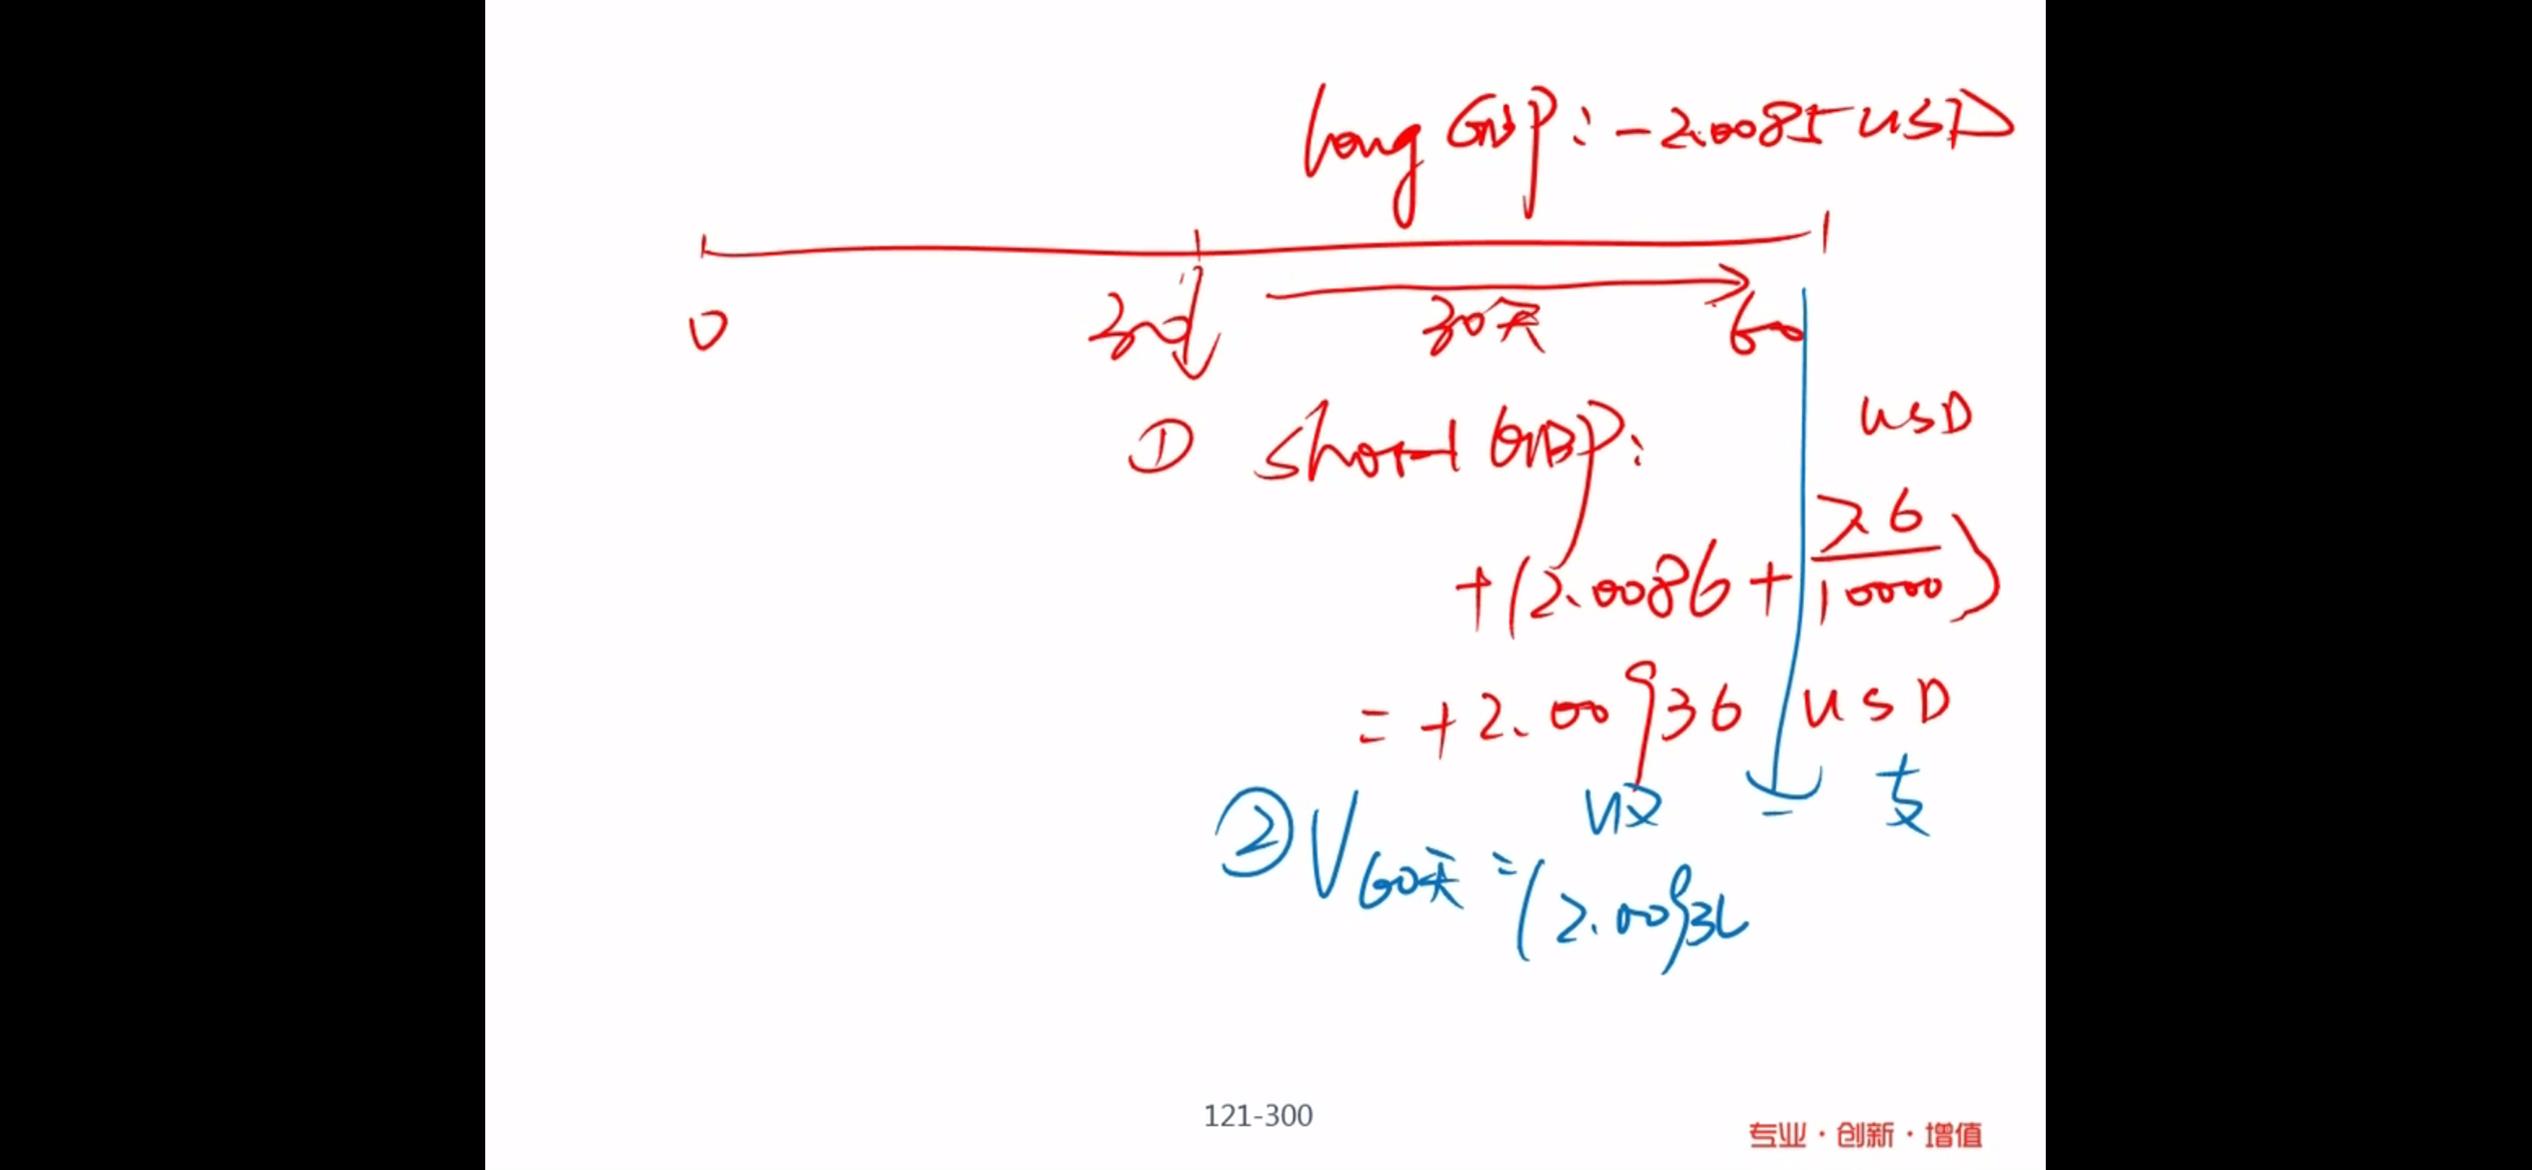 long GBP: -2.0085 USD
0 30d 30天 60
① short GBP: USD
+(2.0086 + 76/10000)
= +2.00936 USD
收 = 支
② V60天 = (2.00936
121-300
专业·创新·增值